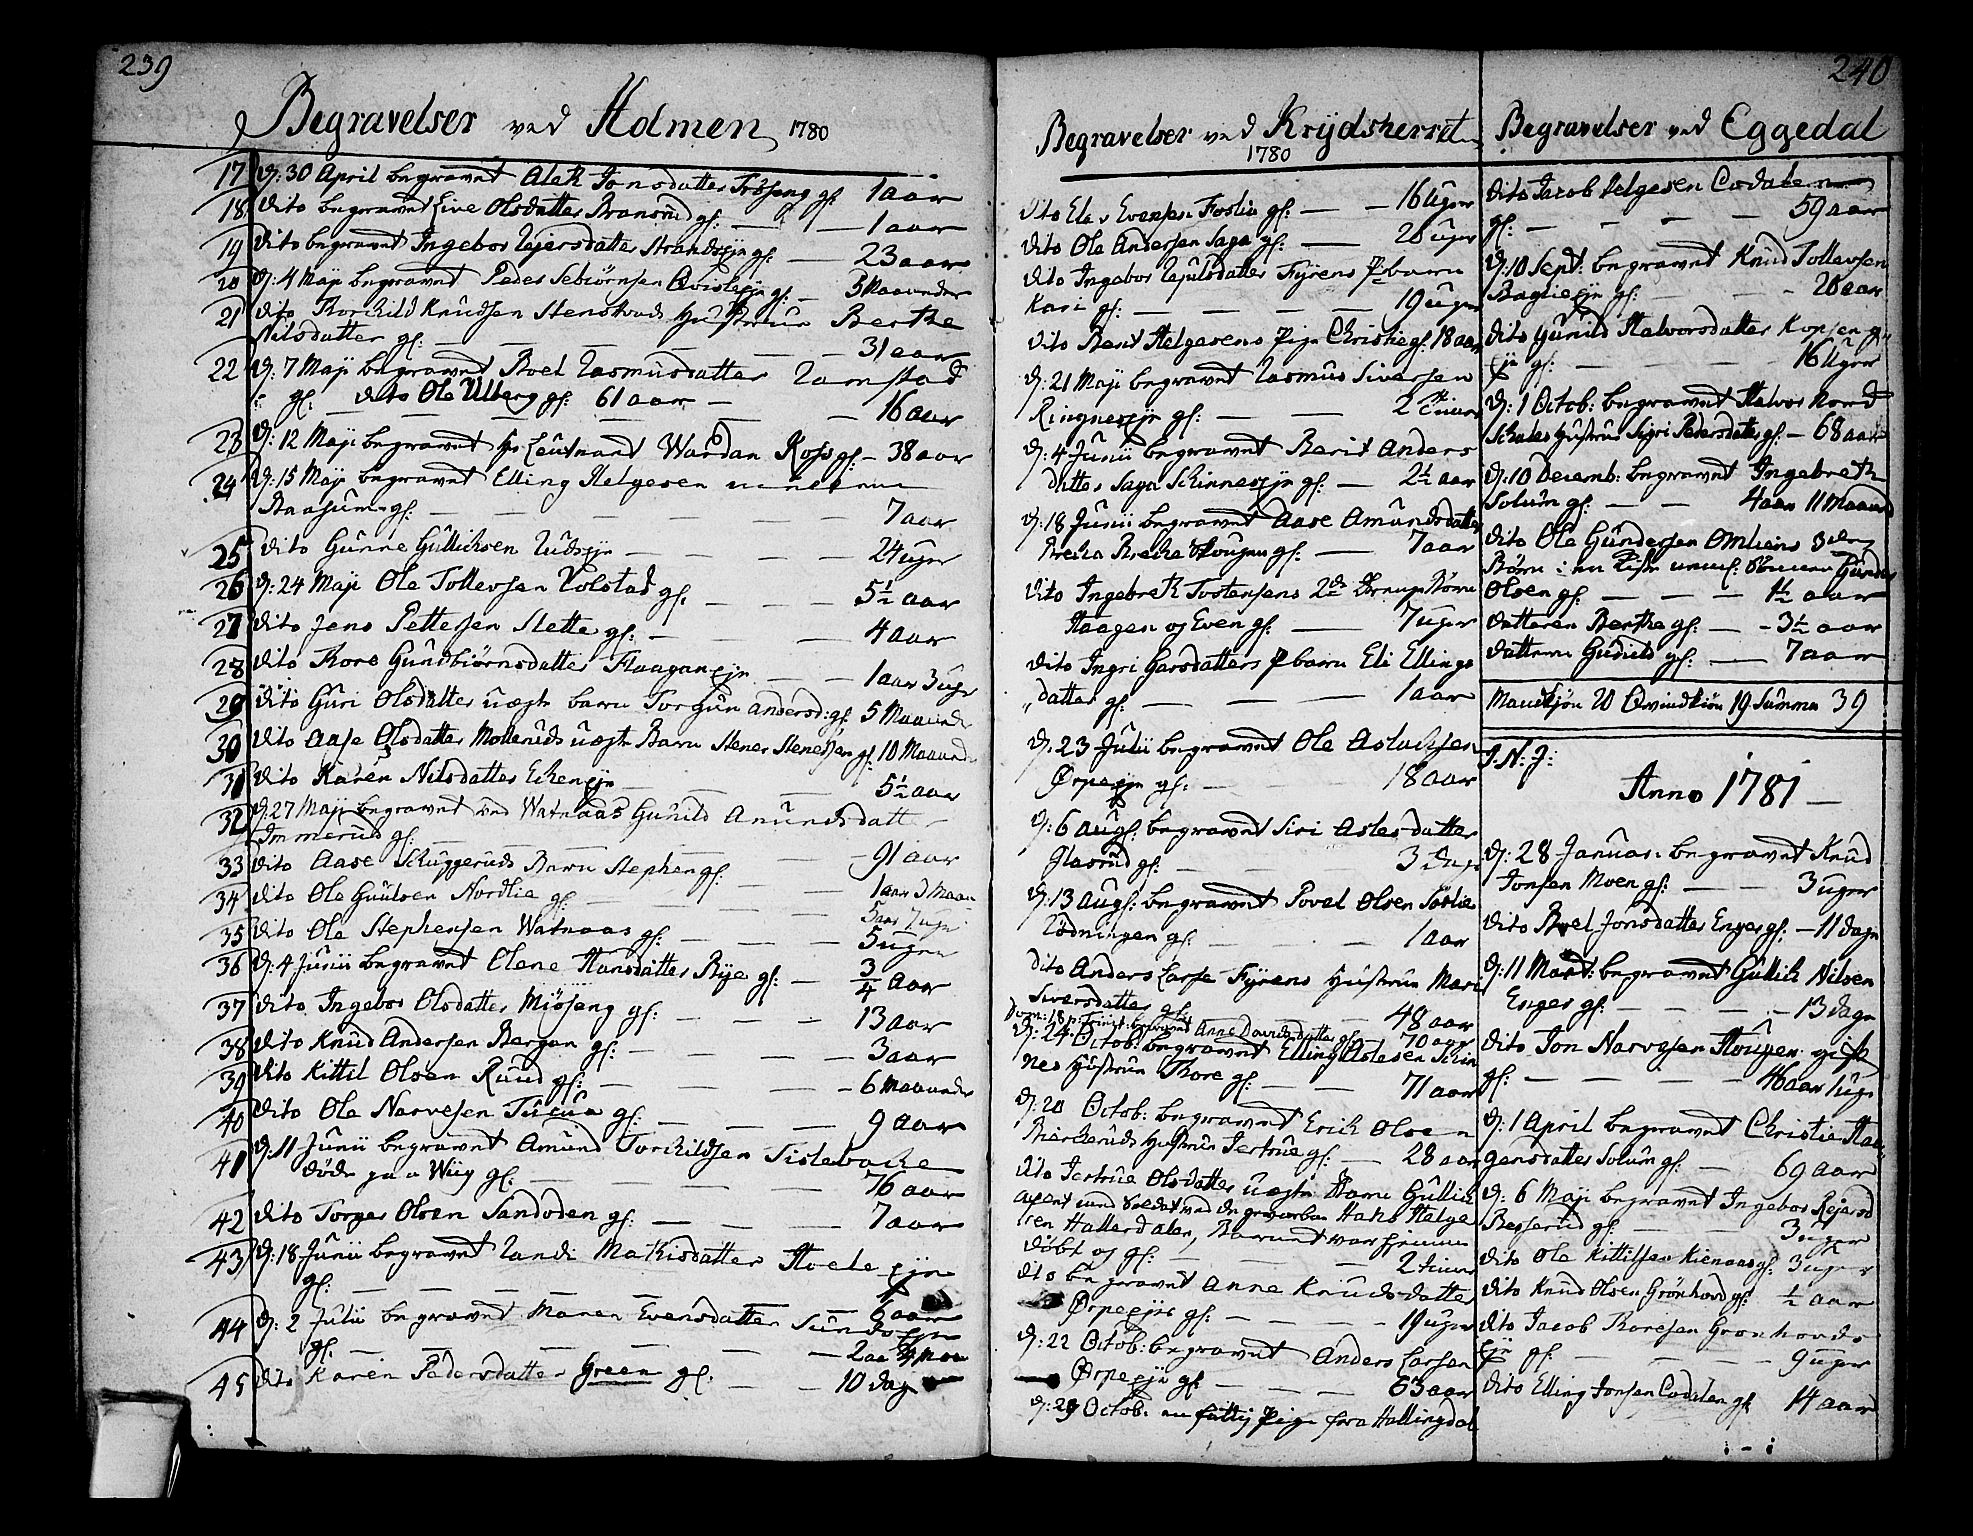 239
Begravelser ved Holmen 1780
17 d: 30 April begravet Aleth Jonsdatter Frøseng gl: 1 aar
18 dito begravet Live Olsdatter gl: — — 1 aar
19 dito begravet Ingebor Strandsejn gl: — 23 aar
20 d: 4 Maji begravet Peder Sebiörnsen gl: — 3 Maaneder
21 dito Torchild Knudsen Hustrue Berthe
Nilsdatter gl: — — — — 31 aar
22 d: 7 Maji begravet Roel Rasmusdatter Ramstad
gl: dito Ole Ulberg gl: 61 aar — — 16 aar
23 d: 12 Maji begravet Hr Leutnant Wardan Ross gl: — 38 aar
24 d: 15 Maji begravet Elling Helgesen
Baasum gl: — — — — 7 aar
25 dito Gunne Gulliksen Rudsejn — — — 24 uger
26 d: 24 Maji Ole Tollevsen Rolstad gl: — — — 5½ aar
27 dito Jens Pettersen Slette gl: — — — 4 aar
28 dito Thore Gundbiörnsdatter Flaaganejn — — 1 aar 3 uger
29 dito Guri Olsdatter uægte barn Torgun andersd: gl: 5 Maaneder
30 dito Aase Olsdatter Mollerud uægte Barn Stener Stenersen gl: 10 Maaned
31 dito Karen Nilsdatter Ekenejn — — — 5½ aar
32 d: 27 Maji begravet ved Watnaas Gunild Amundsdatter
Immerud gl: — — — — 91 aar
33 dito Aase Skuggeruds Barn Stephen gl: — — 1 aar 3 Maan
34 dito Ole Guulsen Nordlie gl: — — — 5 aar 7 uger
35 dito Ole Stephensen Watnaas gl: — — — 5 uger
36 d: 4 Junii begravet Elene Hansdatter Rye gl: — 3/4 aar
37 dito Ingebor Olsdatter Miøseng gl: — — — 13 aar
38 dito Knud Andersen Bergan gl: — — — 3 aar
39 dito Kittil Olsen Ruud gl: — — — 6 maaneder
40 dito Ole Narvesen gl: — — — 9 aar
41 d: 11 Junii begravet Amund Torchildsen Tislebache
døde paa Wiig gl: — — — 76 aar
42 dito Torger Olsen Sandoden gl: — — — 7 aar
43 d: 18 Junii begravet Randi Mathisdatter Hovlesejn
gl: — — — — — 6 aar
44 d: 2 Julii begravet Maren Evensdatter Sundsejn
gl: — — — — — 2 aar 4 Maa
45 dito Karen Pedersdatter Green gl: — — 10 dag
240
Begravelser ved Krydsherret
1780
dito Elev Evensen Foslie gl: — — 16 Uger
dito Ole Andersen Saga gl: — 20 uger
dito Ingebor Fyrens barn
Kari gl: — — — — 19 uger
dito Berit Helgesens Pige Christie gl: 18 aar
d: 21 Maji begravet Rasmus Siversen
Ringnesejn gl: — — 2 Timer
d: 4 Junii begravet Berit Anders
datter Saga Skinnesejn gl: — 2½ aar
d: 18 Junii begravet Aase Amundsdatter
Breka gl: — 7 aar
dito Ingebreth Tostensens 2de Børn
Haagen og Even gl: — 7 uger
dito Ingri barn Eli Ellings
datter gl: — — — 1 aar
d: 23 Julii begravet Ole Aslachsen
Ørpeejn gl: — — 18 aar
d: 6 augs: begravet Siri Aslesdatter
Glasrud gl: — — — 3 dage
d: 13 augs: begravet Povel Olsen
Rødningen gl: — — — 1 aar
dito Anders Larse Fyrens Hustrue Mari
Siversdatter gl: — 48 aar
Dom: 18 p: Trinit: begravet Anne Davidsdatter gl: 70 aar
d: 24 Octob: begravet Elling Aslesen Skin
nes Hustrue Thore gl: — — 71 aar
d: 20 Octob: begravet Erich Olsen
Bierkeruds Hustrue Jertrue gl: — 28 aar
dito Jertrue Olsdatter uægte Barn Gullich
Hans Helge
sen Hallerdalen, Barnet var hjemme
døbt og gl: — — — 2 timer
dito begravet Anne Knudsdatter
Ørpeejn gl: — — — 19 uger
d: 22 Octob: begravet Anders Larsen
Ørpeejn gl: — — — 63 aar
d: 29 Octob: en fattig Pige fra Hallingdal
Begravelser ved Eggedal
dito Jacob Helgesen Codalen
gl: — — — — 59 aar
d: 10 Sept: begravet Knud Tollevsen
Bagliesejn gl: — — — 20 aar
dito Gunild Halvorsdatter
ejn gl: — — — 16 Uger
d: 1 Octob: begravet Halvor Nord
Hustrue Sigri Pedersdatter gl: — 68 aar
d: 10 Decemb: begravet Ingebreth
Solum gl: — — 4 aar 11 Maaned
dito Ole Gundersen Omliens 3de
Børn i en Kiste Sønnen Gunder
Olsen gl: — — — 1½ aar
datteren Berthe gl: — — 3½ aar
datteren Gudild gl: — 7 aar
Mandkiøn 20 Qvindkiön 19 Summa 39
J. N. J:
Anno 1781 —
d: 28 Januar: begravet Knud
Jonsen Moen gl: — — 3 uger
dito Roel Jonsdatter Enger gl: — 11 dage
d: 11 Mart: begravet Gullik Nilsen
Enger gl: — — — 13 dage
dito Jon Narvesen
gl: — — — — 46 aar 1 uge
d: 1 April begravet Christie Haa
gensdatter Solum gl: — 69 aar
d: 6 Maji begravet Ingebor
Besserud gl: — — 3 uger
dito Ole Kittilsen Kienaas gl: 3 uger
dito Knud Olsen Grönhovd gl: ½ aar
dito Jacob Thoresen Gronhovds
ejn gl: — — — 9 uger
dito Elling Jonsen Codalen gl: 14 aar